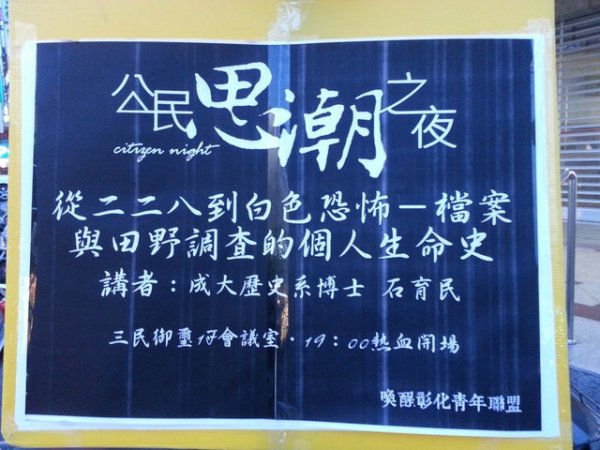 公民思潮之夜
citizen night
從二二八到白色恐怖－檔案
與田野調查的個人生命史
講者：成大歷史系博士 石育民
三民御璽1F會議室．19：00熱血開場
喚醒彰化青年聯盟